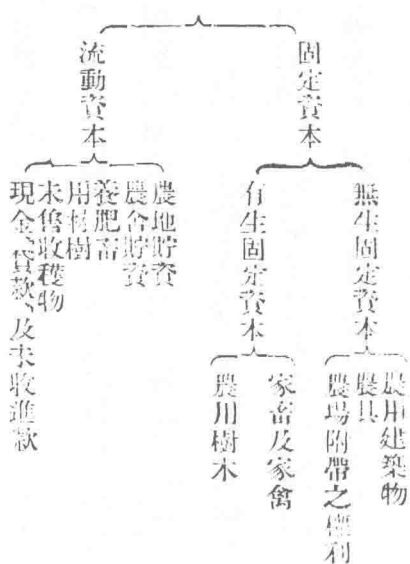 固定資本
無生固定資本
農用建築物
農具
農場附帶之權利
有生固定資本
家畜及家禽
農用樹木
流動資本
農地貯資
農舍貯資
養肥畜
用材樹
未售收穫物
現金、貸款、及未收進款